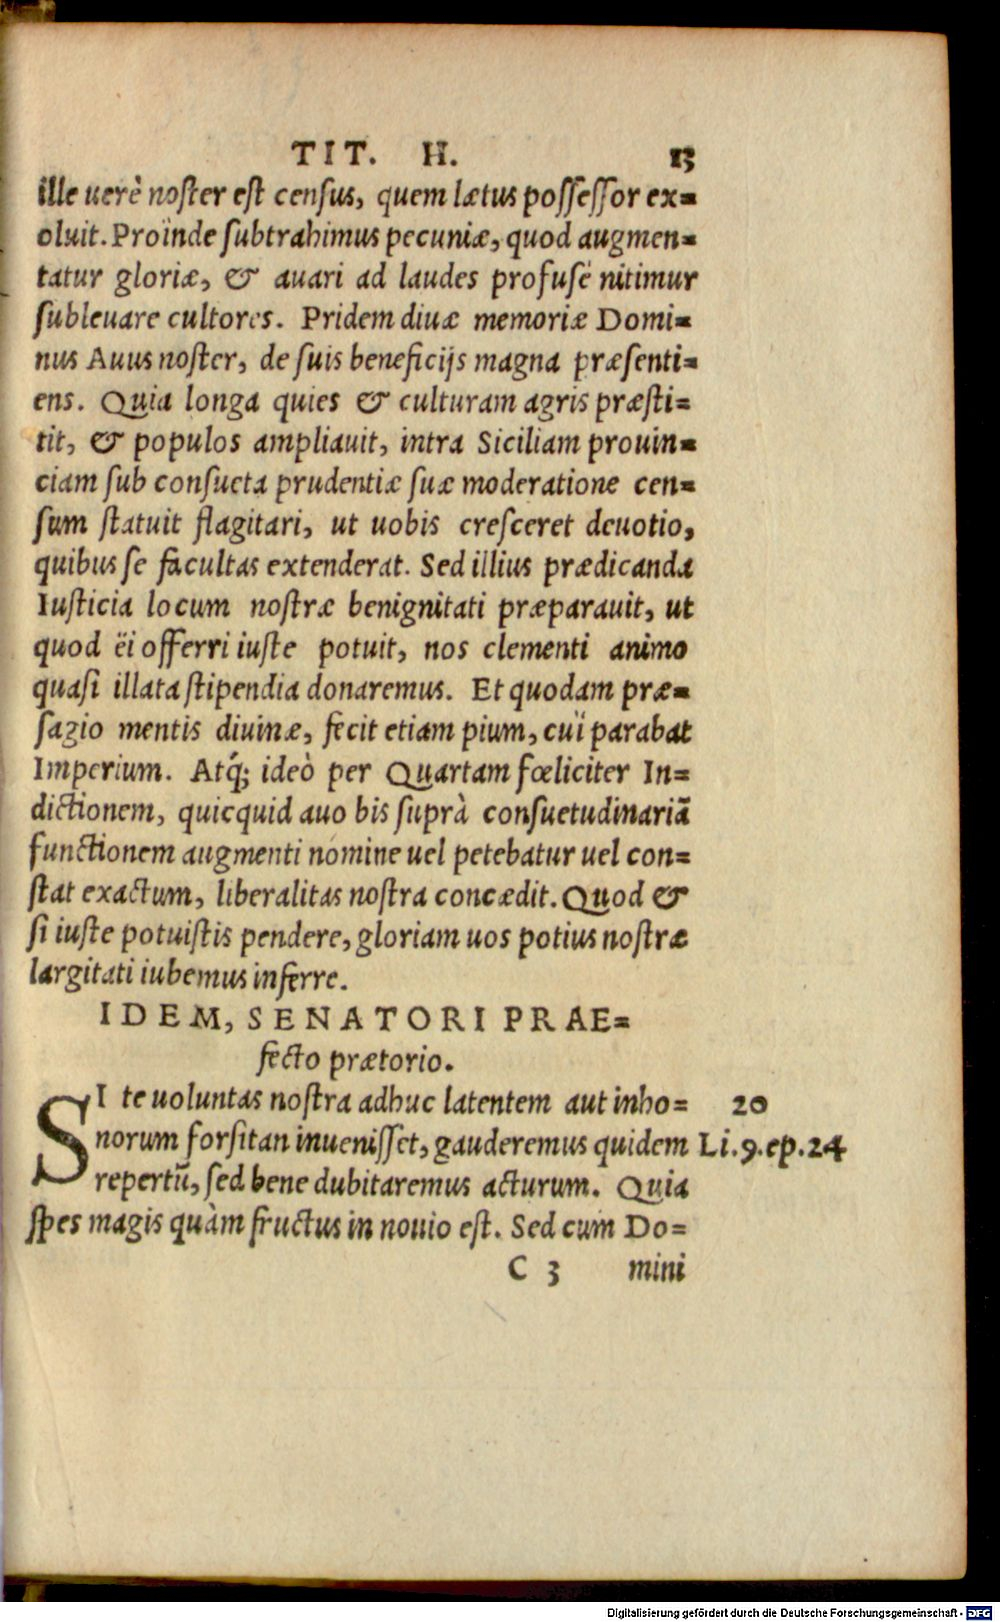 TIT. H. 13
ille uerè noſter eſt cenſus, quem lætus poſſeſſor ex=
oluit. Proïnde ſubtrahimus pecuniæ, quod augmen=
tatur gloriæ, & auari ad laudes profuſè nitimur
ſubleuare cultores. Pridem diuæ memoriæ Domi=
nus Auus noſter, de ſuis beneficijs magna præſenti=
ens. Quia longa quies & culturam agris præſti=
tit, & populos ampliauit, intra Siciliam prouin=
ciam ſub conſueta prudentiæ ſuæ moderatione cen=
ſum ſtatuit flagitari, ut uobis creſceret deuotio,
quibus ſe facultas extenderat. Sed illius prædicanda
Iuſticia locum noſtræ benignitati præparauit, ut
quod ëi offerri iuſte potuit, nos clementi animo
quaſi illata ſtipendia donaremus. Et quodam præ=
ſagio mentis diuinæ, fecit etiam pium, cuï parabat
Imperium. Atq́; ideò per Quartam fœliciter In=
dictionem, quicquid auo bis ſuprà conſuetudinariã
functionem augmenti nomine uel petebatur uel con=
ſtat exactum, liberalitas noſtra concædit. Quod &
ſi iuſte potuiſtis pendere, gloriam uos potius noſtræ
largitati iubemus inferre.
IDEM, SENATORI PRAE=
fecto prætorio.
SI te uoluntas noſtra adhuc latentem aut inho= 20
norum forſitan inueniſſet, gauderemus quidem Li.9.ep.24
repertũ, ſed bene dubitaremus acturum. Quia
ſpes magis quàm fructus in nouio eſt. Sed cum Do=
C 3 mini
Digitalisierung gefördert durch die Deutsche Forschungsgemeinschaft - DFG